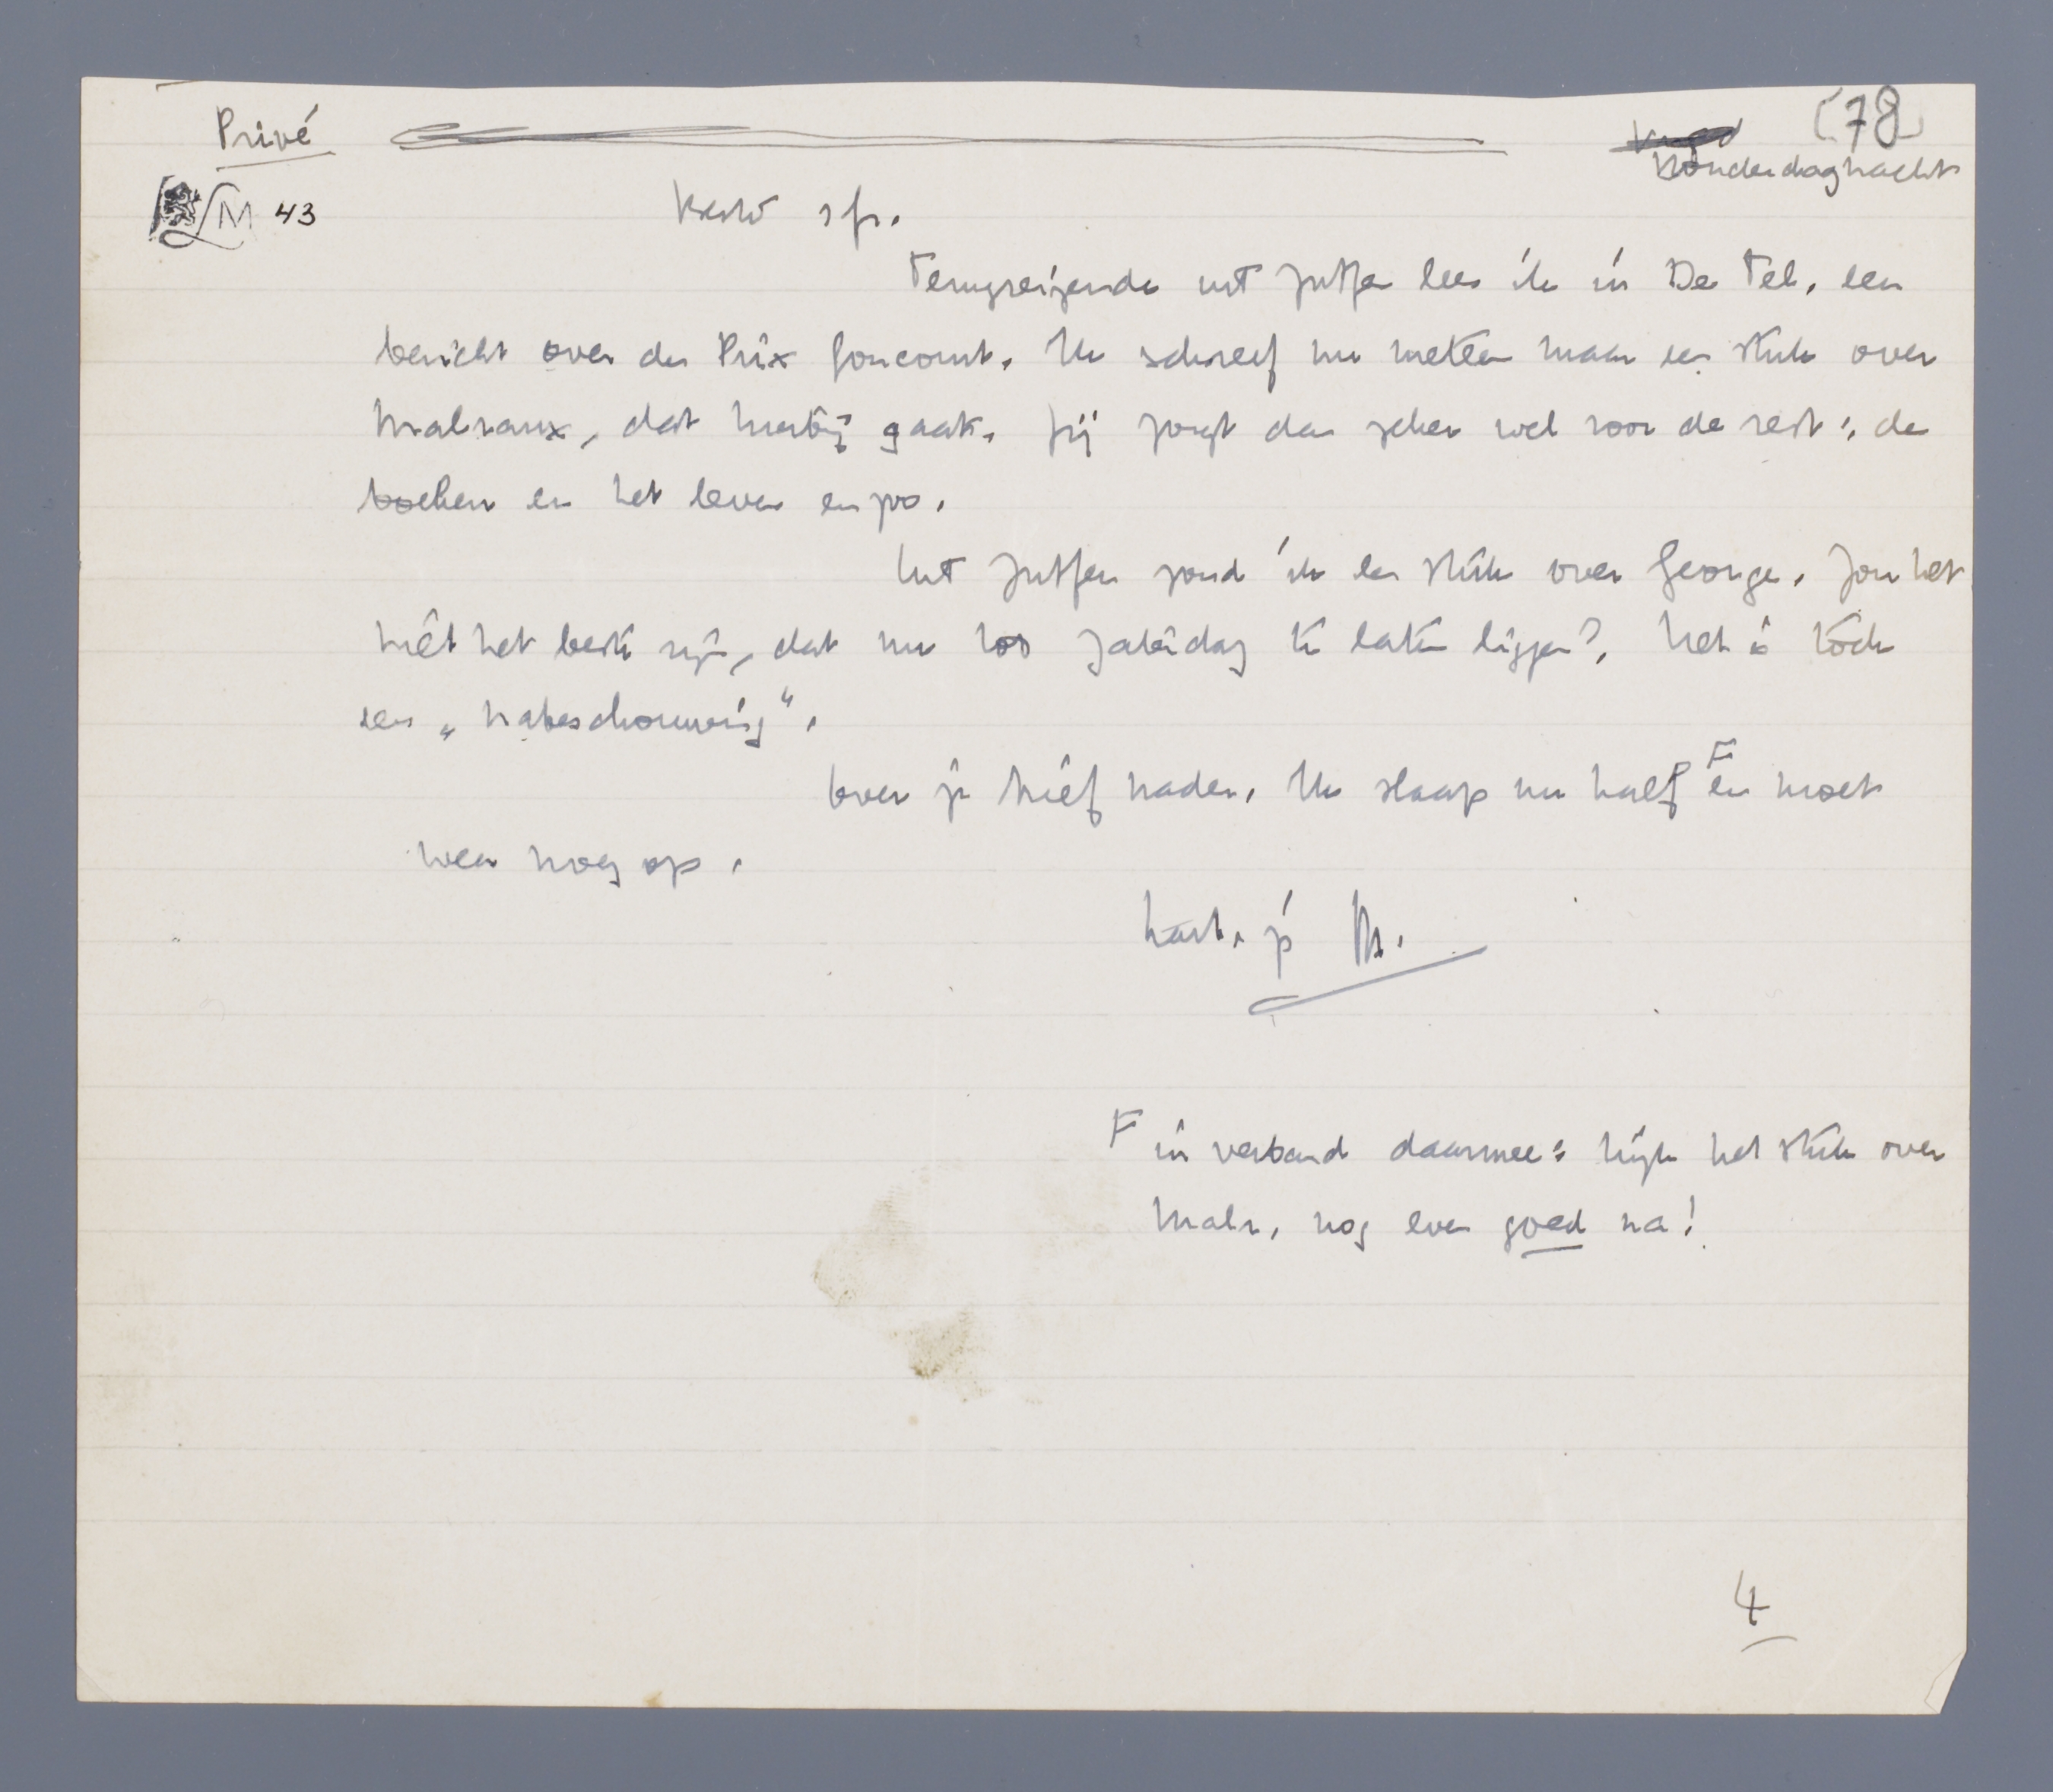 Privé
(78)
Donderdagnacht
LM 43
Beste Sjr.
Terugreizende uit Zutfen lees ik in De Tel. een
bericht over den Prix Goncourt. Ik schreef nu meteen maar een stuk over
Malraux, dat hierbij gaat. Jij zorgt dan zeker wel voor de rest: de
boeken en het leven enzoo.
Uit Zutfen zond ik een stuk over George. Zou het
niet het beste zijn, dat nu tot Zaterdag te laten liggen? Het is toch
een „nabeschouwing".
Over je brief nader. Ik slaap nu half F en moet
weer vroeg op.
hart. gr. M.
F in verband daarmee: kijk het stuk over
Malr. nog even goed na!
4